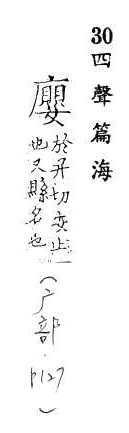 30 四聲篇海
廮
於井切安止
也又縣名也
(广部.p127)